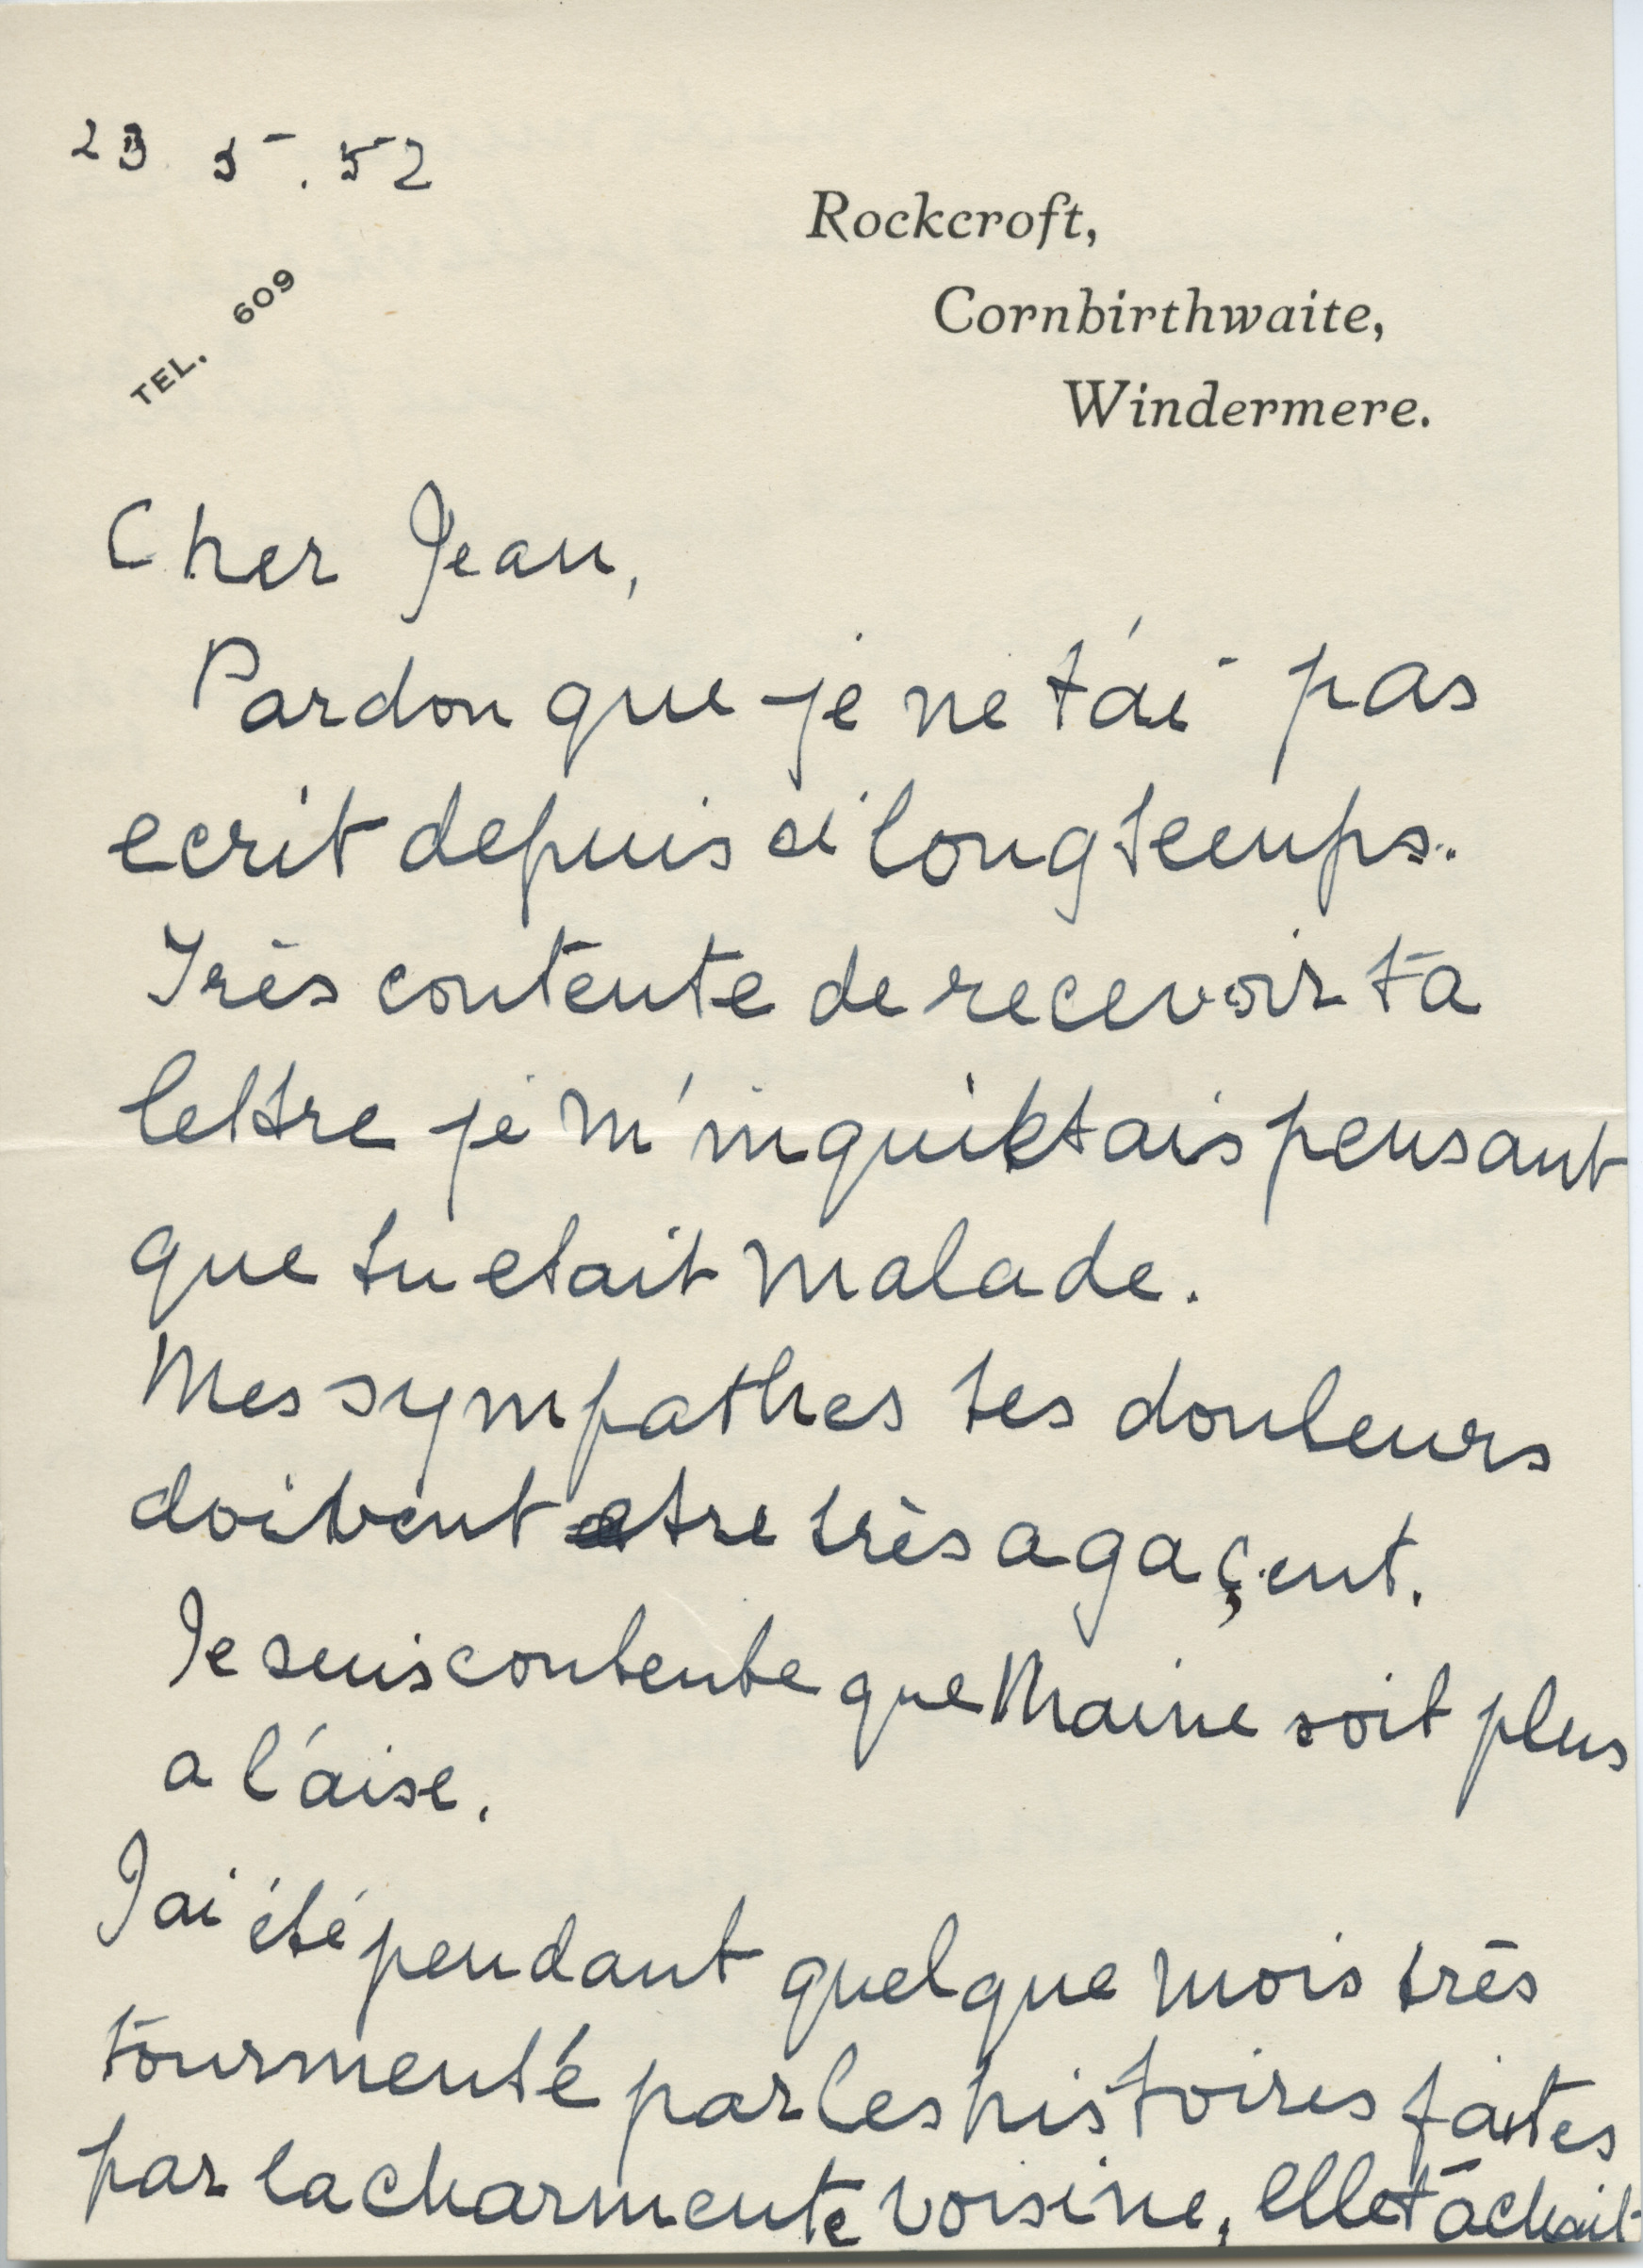 23 5. 52
TEL. 609
Rockcroft,
Cornbirthwaite,
Windermere.
Cher Jean,
Pardon que je ne t'ai pas
ecrit depuis si longtemps.
Très contente de recevoir ta
lettre je m'inquietais pensant
que tu etait malade.
Mes sympathes tes douleurs
doivent etre très agaçent.
Je suis contente que Maine soit plus
a l'aise.
J'ai été pendant quelque mois très
tourmenté par les histoires faites
par la charmente voisine, elle tachait